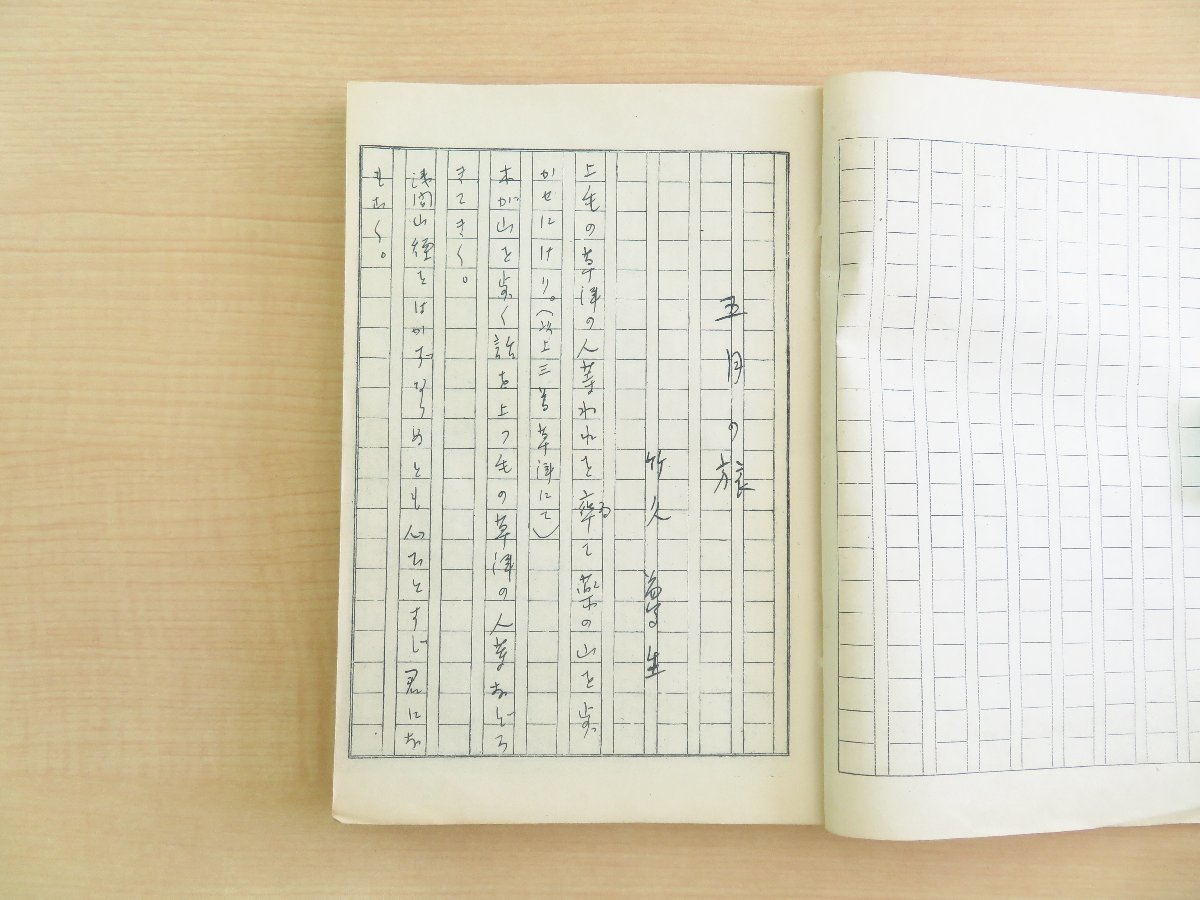 五月の旅
竹久 夢生
上毛の草津の人等われを率て薬の山を歩
ゐ
かせにけり。(以上三首草津にて)
木が山を歩く話を上つ毛の草津の人等おどろ
きてきく。
浅間山煙をはかず ともすじ君にお
もおく。